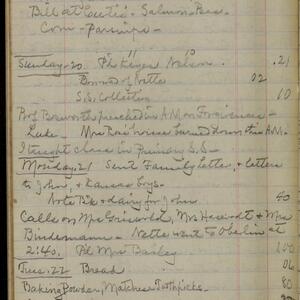 Bill at
Salmon
Corn - Parsnips -
Sunday - 20 Pd Nelson .21
Borrowed of Nettie 02
S.S. Collection 10
Prof Bosworth preached in A.M. on Forgiveness -
Luke - Mrs house burned down this A.M.
I taught class in Primary S.S. -
Monday. 21 Sent Family Letter, & letters
to John, & Kansas boys -
Note Bk & dairy for John 40
Calls on Mrs Griswold, Mrs & Mrs
Bindemann - Nettie went to Oberlin at
2:40. Pd Mrs Bailey 1.00
Tues. 22 Bread 06
Baking Powder, Matches, Toothpicks 80